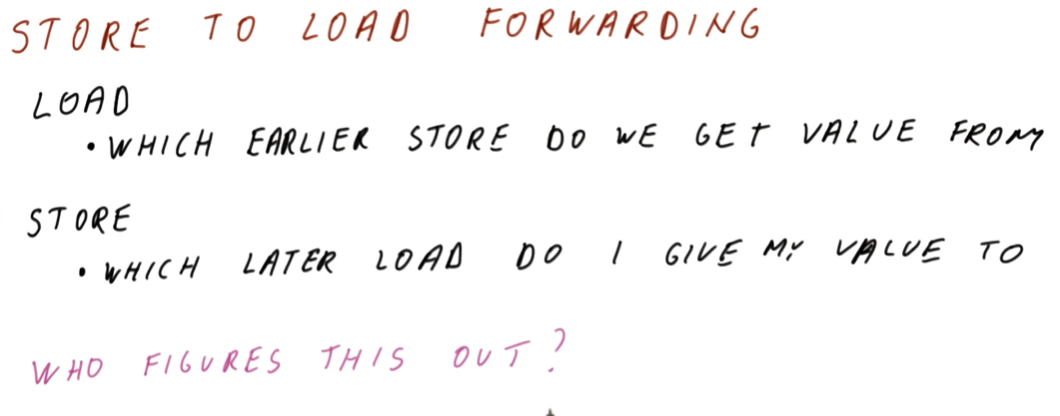 STORE TO LOAD FORWARDING
LOAD
• WHICH EARLIER STORE DO WE GET VALUE FROM
STORE
• WHICH LATER LOAD DO I GIVE MY VALUE TO
WHO FIGURES THIS OUT?